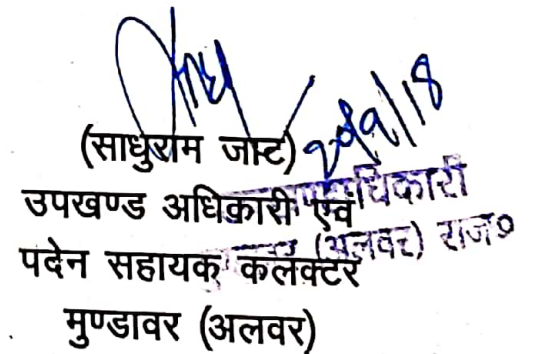 20/9/18
(साधुराम जाट)
उपखण्ड अधिकारी एवं
पदेन सहायक कलक्टर
मुण्डावर (अलवर)
(अलवर) राज०